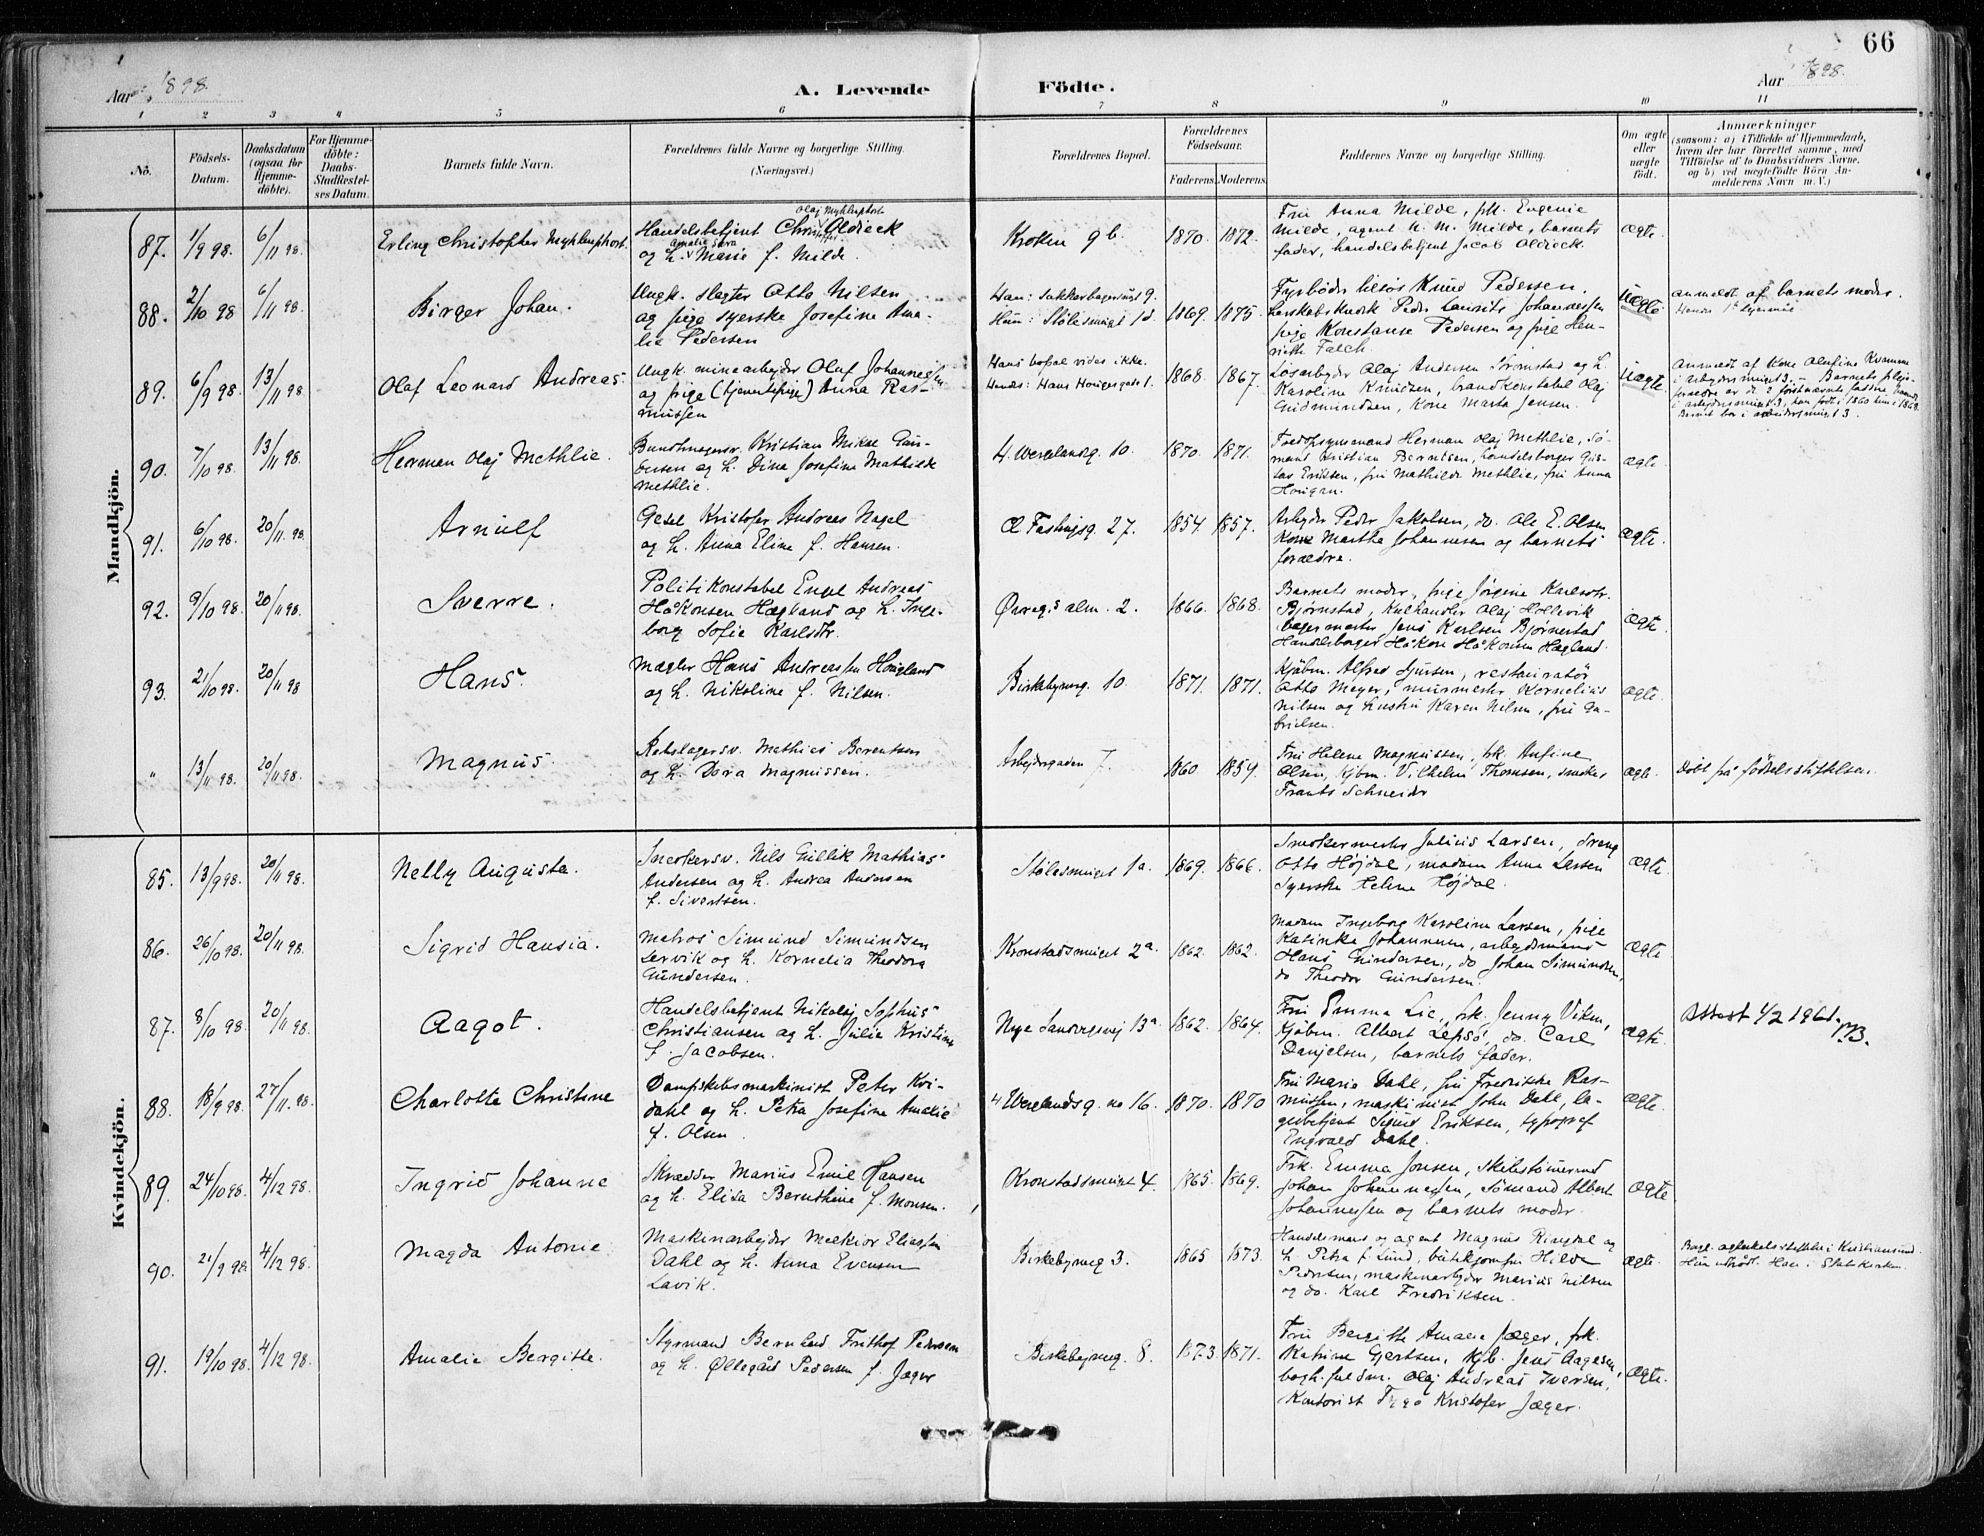 66
Aar 1898.
A. Levende Födte.
Aar 1898.
1 2 3 4 5 6 7 8 9 10 11
No.
Födsels-Datum.
Daabsdatum (ogsaa for Hjemme-döbte).
For Hjemme-döbte: Daabs-Stadfæstel-ses Datum.
Barnets fulde Navn.
Forældrenes fulde Navne og borgerlige Stilling. (Næringsvei.)
Forældrenes Bopæl.
Forældrenes Födselsaar.
Faderens. Moderens.
Faddernes Navne og borgerlige Stilling.
Om ægte eller uægte födt.
Anmærkninger
(saasom: a) i Tilfælde af Hjemmedaab,
hvem der har forrettet samme, med
Tilföielse af to Daabsvidners Navne,
og b) ved uægtefödte Börn An-
melderens Navn m. V.)
Mandkjön.
87. 1/9 98. 6/11 98. Erling Christopher Myklephost.
Olaf Myklephost
Handelsbetjent Christoffer Oldieck
Amalie Sara
og h. Marie f. Milde.
Kroken 9 b. 1870. 1872.
Fru Anna Milde, frk. Eugenie
Milde, agent H. M. Milde, barnets
fader, handelsbetjent Jacob Oldieck.
ægte.
88. 2/10 98 6/11 98. Birger Johan.
Ungk. slagter Otto Nilsen
og pige syerske Josefine Ama-
lie Pedersen
Han: Sukkerhagesmuget 9.
Hun: Stølesmuget 1d. 1869. 1875.
Fyrbøder Knud Pedersen,
Peder Laurits Johannessen
pige Konstanse Pedersen og pige Hen-
riette Falch.
Uægte.
anmeldt af barnets moder.
89. 6/9 98. 13/11 98. Olaf Leonard Andreas.
Ungk. minearbejder Olaf Johannessen
og pige (tjenestepige) Anna Ras-
mussen
Hans bopæl vides ikke.
Hendes: Hans Haugesgade 1. 1868. 1867.
Løsarbejder Olaf Andersen Strømstad og h.
Karoline Knudsen, brandkonstabel Olaf
Gudmundsen, Kone Marta Jensen.
Uægte
Anmeldt af Kone Olufine Kvamme
i Arbejdersmuget 3. – Barnets pleje-
forældre er de 2 førstnævnte faddre
i arbejdersmuget 3, han født i 1860 hun i 1868.
Barnet bor i arbeidersmuget 3.
90. 7/10 98. 13/11 98. Herman Olaf Methlie.
Buntmagersv. Kristian Mikal Gun-
dersen og h. Dina Josefine Mathilde
Methlie.
H. Wergelandsg. 10. 1870. 1871.
Toldopsynsmand Herman Olaf Methlie, Sø-
mand Kristian Berntsen, handelsborger Gus-
tav Eriksen, fru Mathilde Methlie, fru Anna
Hougan.
ægte.
91. 6/10 98. 20/11 98. Arnulf
Gesel Kristofer Andreas Nagel
og h. Anna Eline f. Hansen.
Fastingsg. 27. 1854. 1857.
Arbejder Peder Jakobsen, do. Ole E. Olsen
Kone Martha Johannesen og barnets
forældre.
ægte.
92. 9/10 98. 20/11 98. Sverre.
Politikonstabel Engel Andreas
Håkonsen Hægland og h. Inge-
borg Sofie Karlsdtr.
Øvregs alm. 2. 1866. 1868.
Barnets moder, pige Jørgine Karlsdtr.
Bjørnstad, Kulhandler Olaf Hollevik
bagermester Jens Karlsen Bjørnestad
Handelsborger Håkon Håkonsen Hægland.
ægte.
93. 21/10 98. 20/11 98 Hans.
Mægler Hans Andreassen Hougland
og h. Nikoline f. Nilsen.
Birkebejnerg. 10. 1871. 1871.
Kjøbm. Alfred Sjursen, restauratør
Otto Meyer, murmester Kornelius
Nilsen og hustru Karen Nilsen, fru Ga-
brielsen.
ægte.
" 13/11 98. 20/11 98. Magnus.
Rebslagersv. Mathias Berentsen
og h. Dora Magnussen.
Arbejdergaden 7. 1860 1859.
Fru Helene Magnussen, frk. Anfine
Olsen, kjøbm. Vilhelm Thomsen, snedker
Frants Schneider
ægte.
Døbt på fødselsstiftelsen.
Kvindekjön.
85. 13/9 98. 20/11 98. Nelly Augusta.
Snedkersv. Nils Gullik Mathias
Andersen og h. Andrea Andersen
f. Sivertsen.
Stølesmuget 1a. 1869. 1866.
Snedkermester Julius Larsen, dreng
Otto Højdal, madam Anna Larsen
Syerske Helene Højdal.
ægte.
86. 26/10 98. 20/11 98. Sigrid Hansia.
Matros Simund Simundsen
Lervik og h. Kornelia Theodora
Gundersen.
Kronstadsmuget 2a. 1862. 1862.
Madam Ingeborg Karoline Larsen, pige
Katinka Johannesen, arbejdsmand
Hans Gundersen, do Johan Simundsen,
do Theodor Gundersen.
ægte.
87. 8/10 98. 20/11 98. Aagot.
Handelsbetjent Nikolaj Sophus
Christiansen og h. Julie Kristine
f. Jacobsen.
Nye Sandvigsvej 13a 1862. 1864.
Fru Emma Lie, frk. Jenny Viken,
Kjøbm. Albert Lepsø, do. Carl
Danjelsen, barnets fader.
ægte.
Attest 4/2 1961.
88. 18/9 98. 27/11 98. Charlotte Christine
Dampskibsmaskinist Peter Kvi-
dahl og h. Petra Josefine Amalie
f. Olsen.
H Wergelandsg. no 16. 1870. 1870
Fru Marie Dahl, fru Fredrikke Ras-
mussen, maskinist John Dahl, la-
gerbetjent Sigurd Eriksen, typograf
Engvald Dahl.
ægte.
89. 24/10 98. 4/12 98. Ingrid Johanne
Skrædder Marius Emil Hansen
og h. Elisa Bernthine f. Monsen.
Kronstadsmuget 4. 1865. 1869.
Frk. Emma Jonsen, Skibstømmermd
Johan Johannessen, Sømand Albert
Johannessen og barnets moder.
ægte
90. 21/9 98 4/12 98. Magda Antonie
Maskinarbejder Melkior Eliassen
Dahl og h. Anna Evensen
Lavik.
Birkebejnerg 3. 1865 1873.
Handelsmand og agent Magnus Ringdal og
h. Petra f. Lund, butikjomfru Hilda
Pedersen, maskinarbejder Marius Nilsen
og do. Karl Fredriksen.
ægte.
Hun udtrådt. Han i Statskirken.
91. 19/10 98. 4/12 98. Amalie Bergitte.
Styrmand Bernhard Frithof Pedersen
og h. Øllegård Pedersen f. Jæger
Birkebejnerg. 8. 1873. 1871.
Fru Bergitte Amalie Jæger, frk.
Katrine Gjertsen, Kjb. Jens Aagesen,
Olaf Andreas Iversen,
Kontorist Tygo Kristofer Jæger.
ægte.